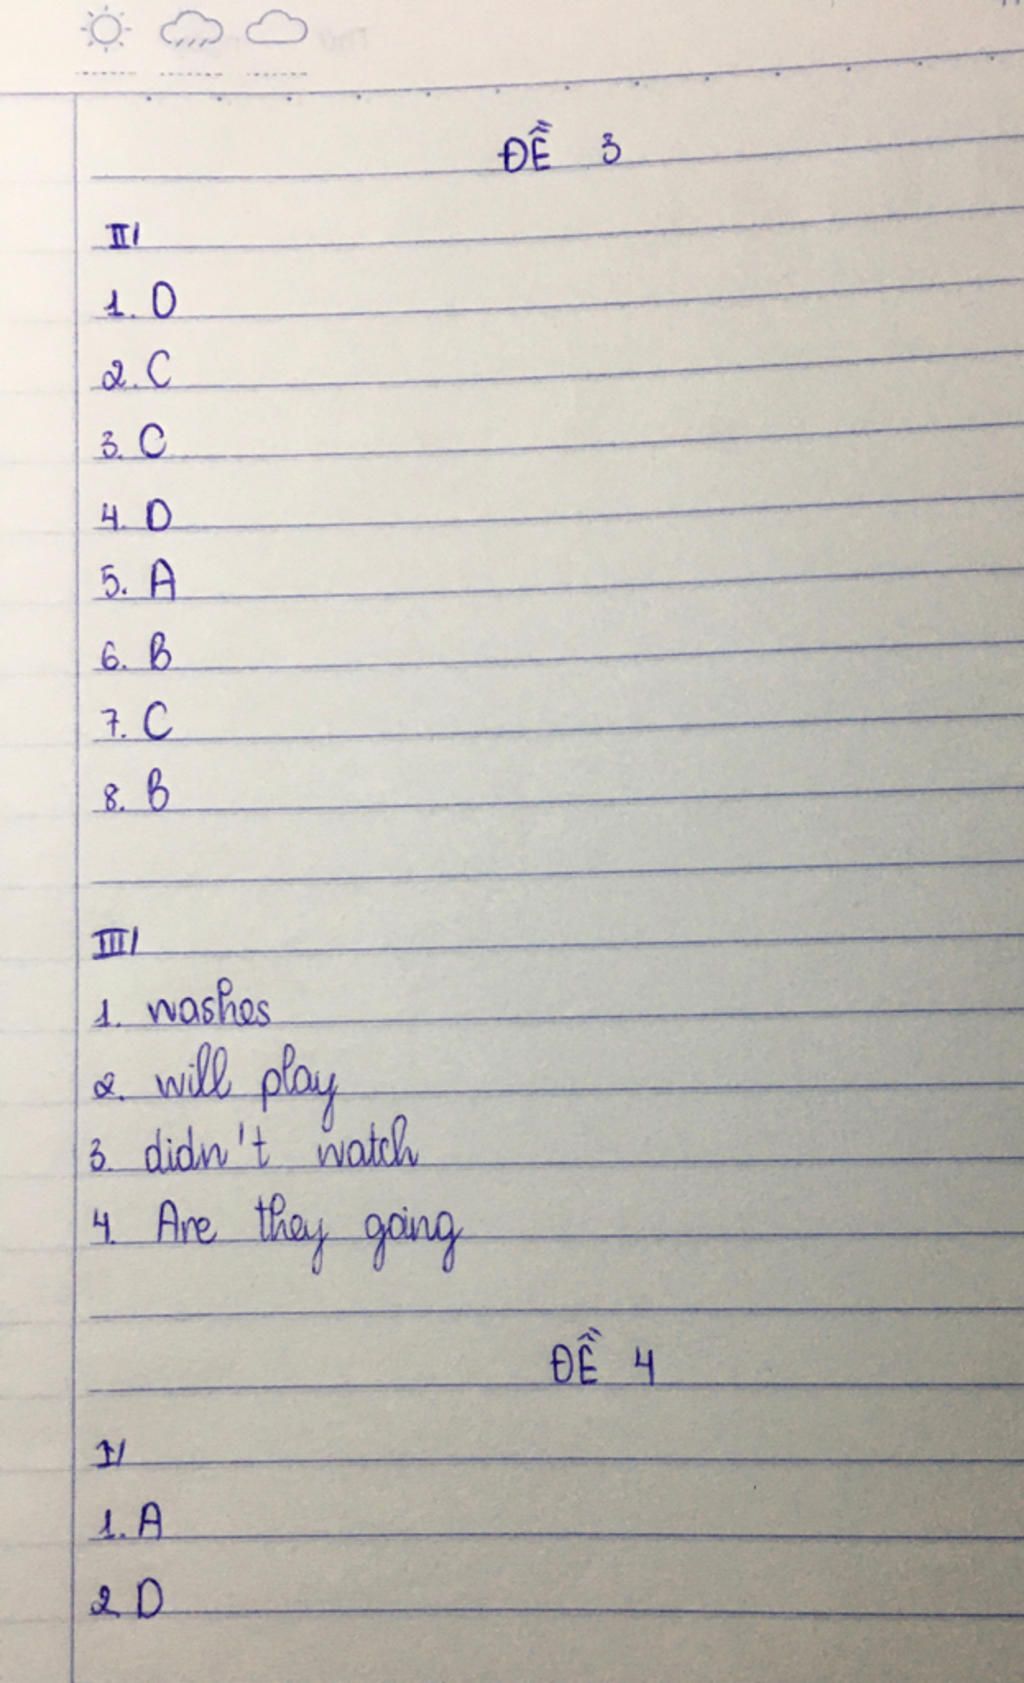 ĐỀ 3
II/
1. D
2. C
3. C
4. D
5. A
6. B
7. C
8. B
III/
1. washes
2. will play
3. didn't watch
4. Are they going
ĐỀ 4
I/
1. A
2 D